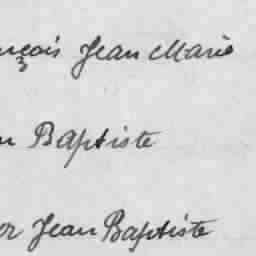 nçois Jean Marie
n Baptiste
or Jean Baptiste